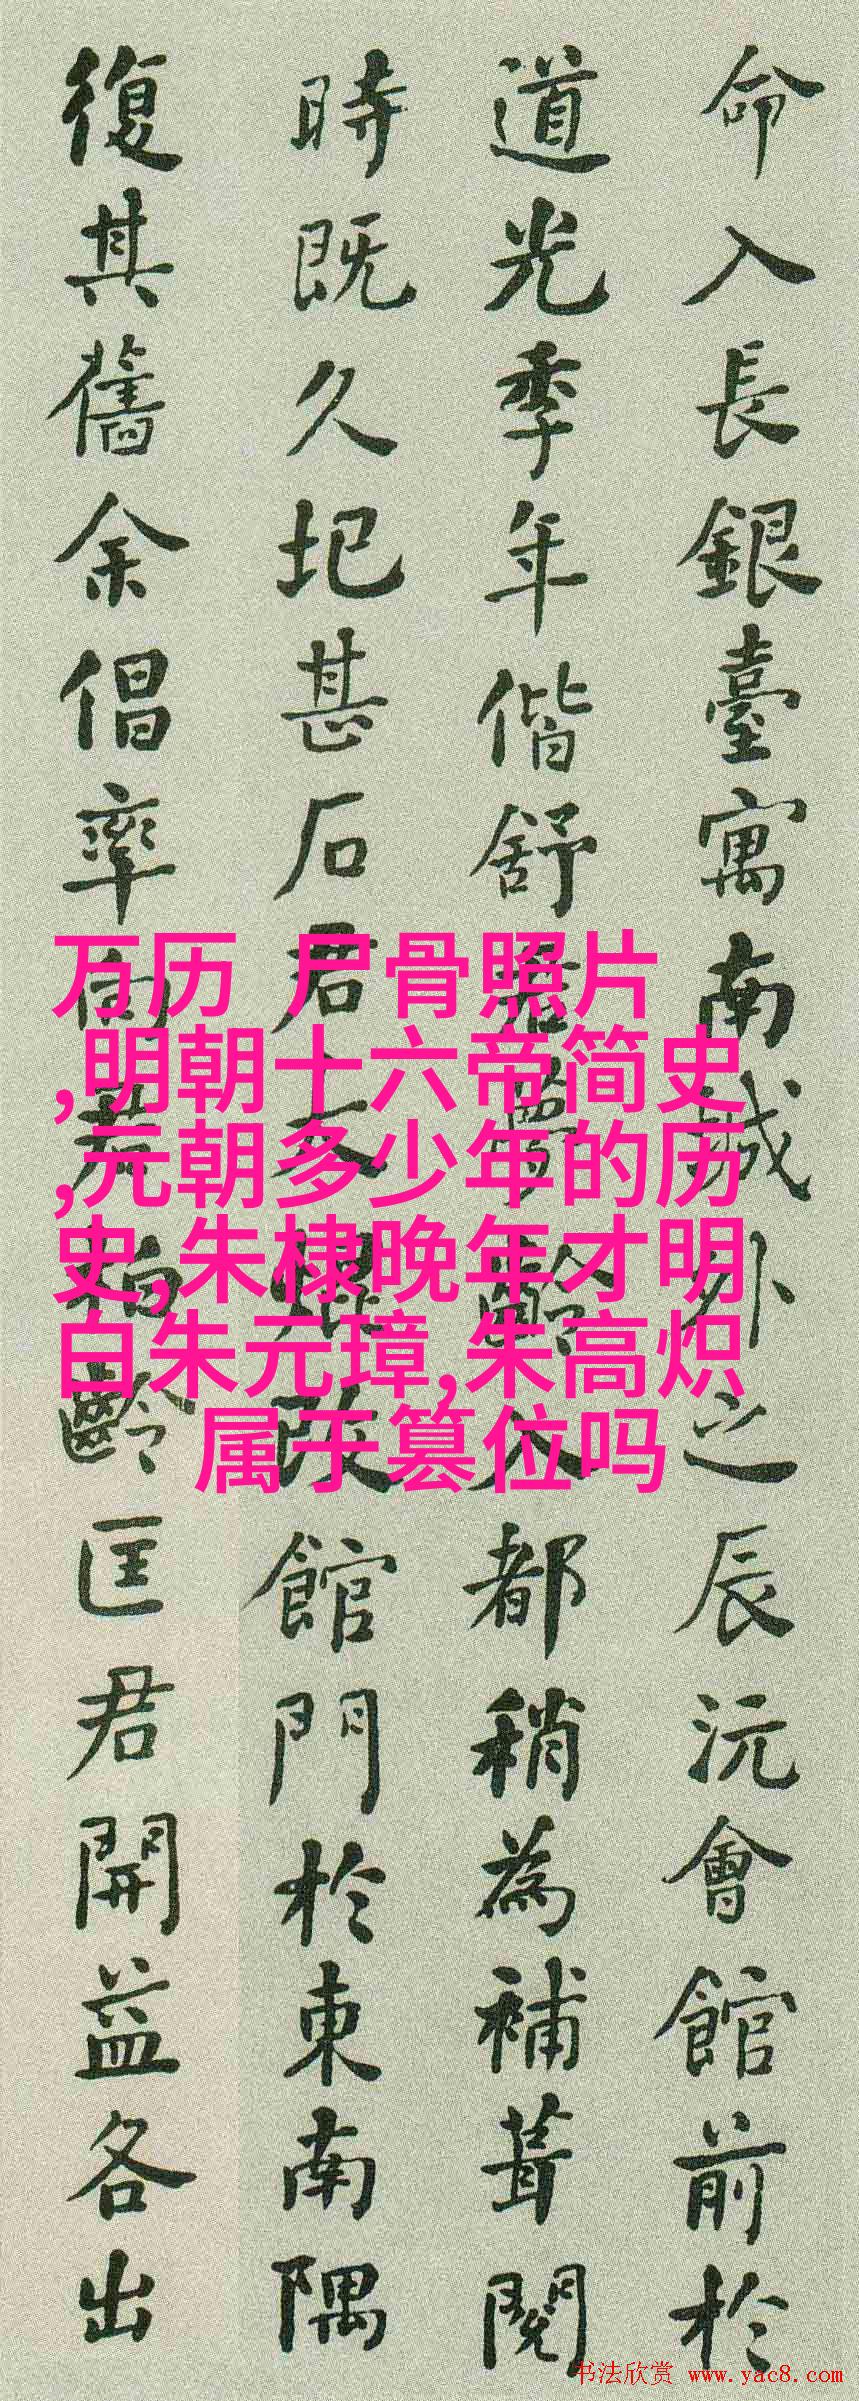 命入長銀臺寓南城外之辰沅會館前於
道光季年偕舒齡入都稍為補葺閱
時既久圮甚石君改館門於東南隅
復其舊余倡率向君柏齡匡君開益各出
万历 尸骨照片
,明朝十六帝简史
,元朝多少年的历
史,朱棣晚年才明
白朱元璋,朱高炽
属于篡位吗
书法欣赏 www.yac8.com